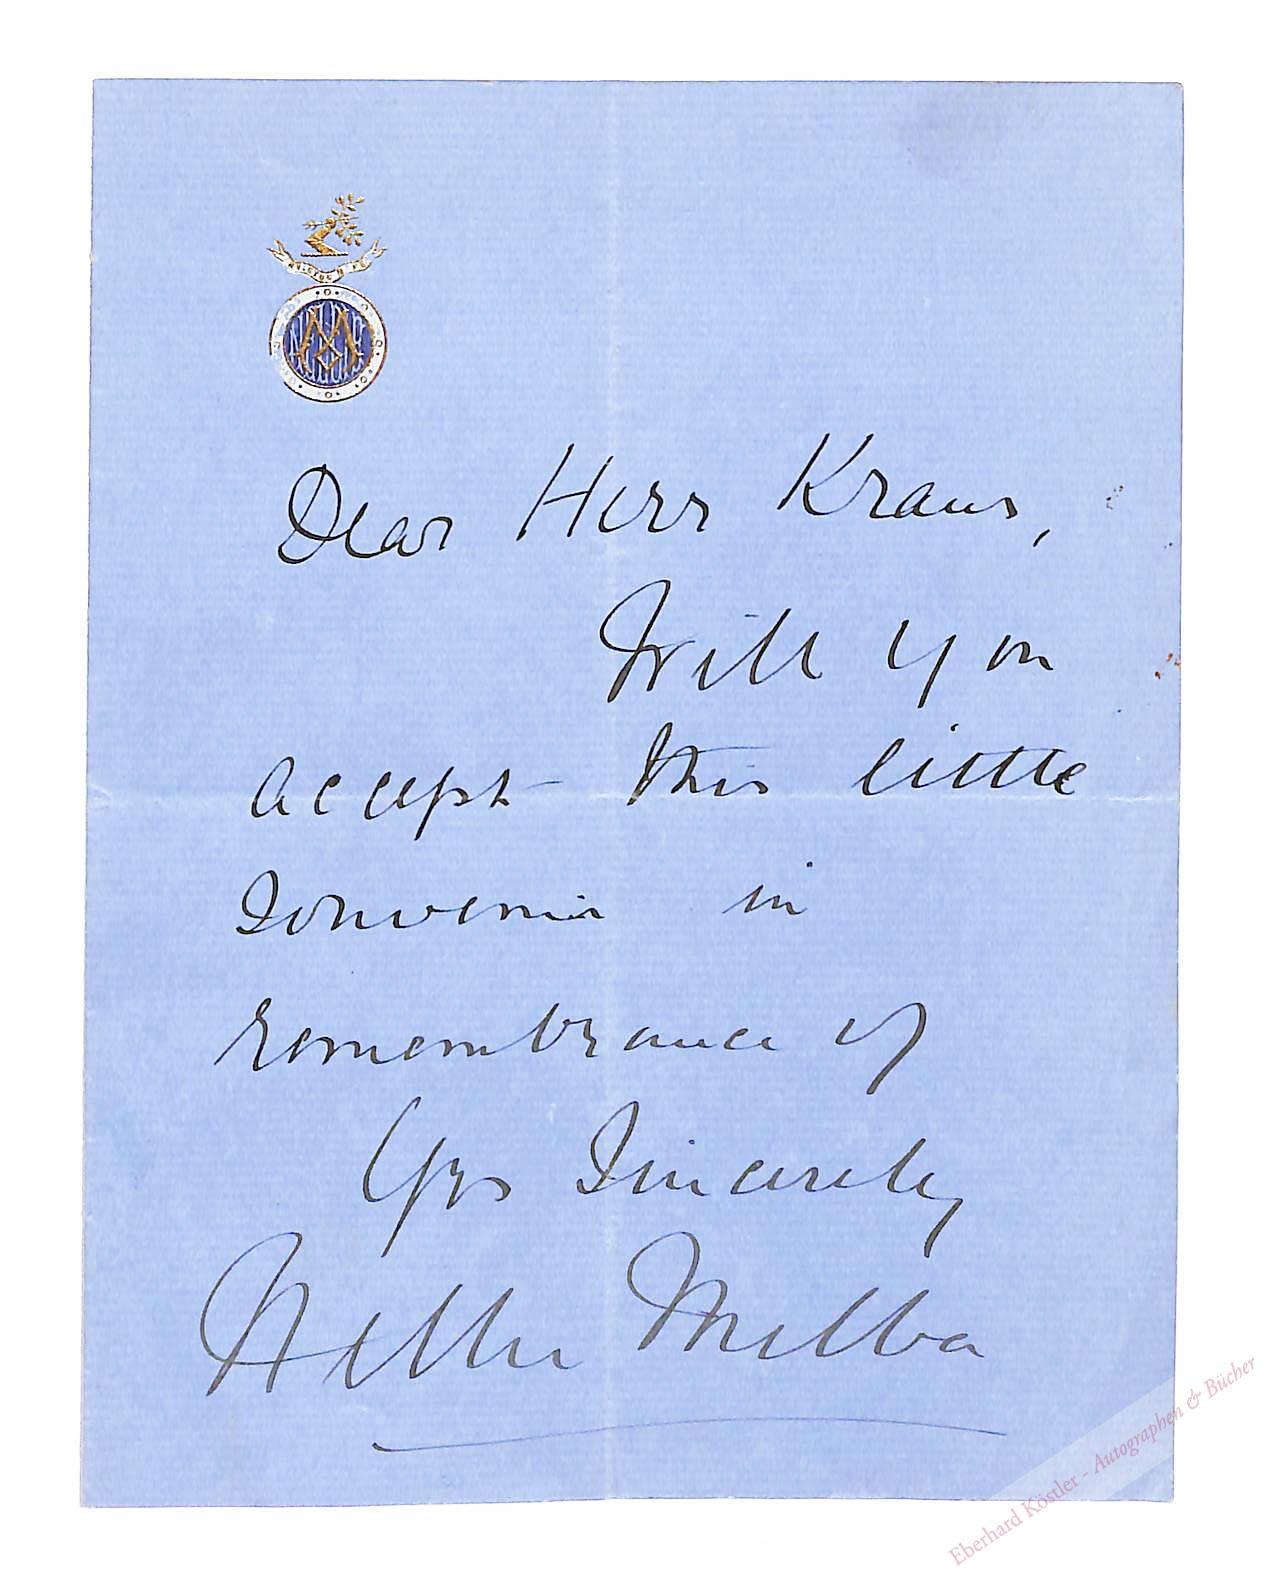 Dear Herr Kraus,
Will you
accept this little
Souvenir in
remembrance of
Yrs Sincerely
Nellie Melba
Eberhard Köstler - Autographen & Bücher